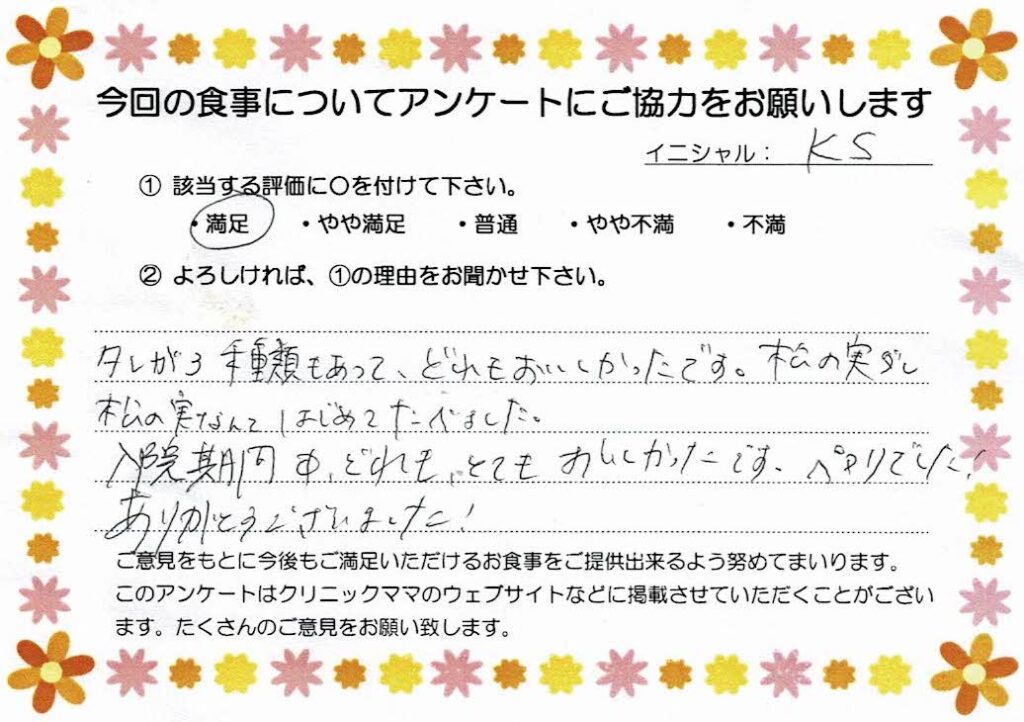 今回の食事についてアンケートにご協力をお願いします
イニシャル： KS
① 該当する評価に〇を付けて下さい。
・満足 ・やや満足 ・普通 ・やや不満 ・不満
② よろしければ、①の理由をお聞かせ下さい。
タレが3種類もあって、どれもおいしかったです。松の実ダレ
松の実なんてはじめてたべました。
入院期間中、どれも、とてもおいしかったです、ペロリでした!
ありがとうございました!
ご意見をもとに今後もご満足いただけるお食事をご提供出来るよう努めてまいります。
このアンケートはクリニックママのウェブサイトなどに掲載させていただくことがござい
ます。たくさんのご意見をお願い致します。